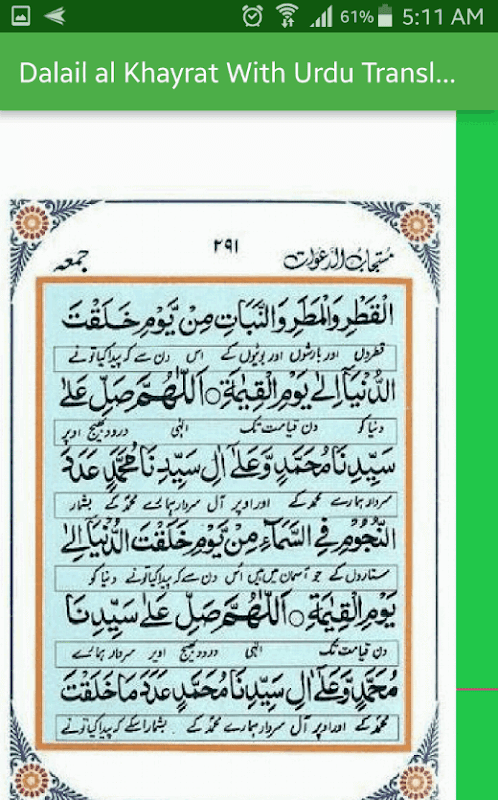 61% 5:11 AM
Dalail al Khayrat With Urdu Transl...
مستجاب الدعوات ٢٩١ جمعه
الْقَطْرِ وَالْمَطَرِ وَالنَّبَاتِ مِنْ يَّوْمِ خَلَقْتَ
قطروں اور بارشوں اور بوٹیوں کے اس دن سے کہ پیدا کیا تونے
الدُّنْيَآ اِلٰى يَوْمِ الْقِيٰمَةِ ○ اَللّٰهُمَّ صَلِّ عَلٰى
دنیا کو دن قیامت تک الٰہی درود بھیج اوپر
سَيِّدِنَا مُحَمَّدٍ وَّعَلٰٓى اٰلِ سَيِّدِنَا مُحَمَّدٍ عَدَدَ
سردار ہمارے محمد کے اور اوپر آل سردار ہمارے محمد کے بشمار
النُّجُوْمِ فِى السَّمَآءِ مِنْ يَّوْمِ خَلَقْتَ الدُّنْيَآ اِلٰى
ستاروں کے جو آسمان میں ہیں اُس دن سے کہ پیدا کیا تونے دنیا کو
يَوْمِ الْقِيٰمَةِ ○ اَللّٰهُمَّ صَلِّ عَلٰى سَيِّدِنَا
دن قیامت تک الٰہی درود بھیج اوپر سردار ہمارے
مُحَمَّدٍ وَّعَلٰٓى اٰلِ سَيِّدِنَا مُحَمَّدٍ عَدَدَ مَا خَلَقْتَ
محمد کے اور اوپر آل سردار ہمارے محمد کے بشمار اسکے کہ پیدا کیا تونے